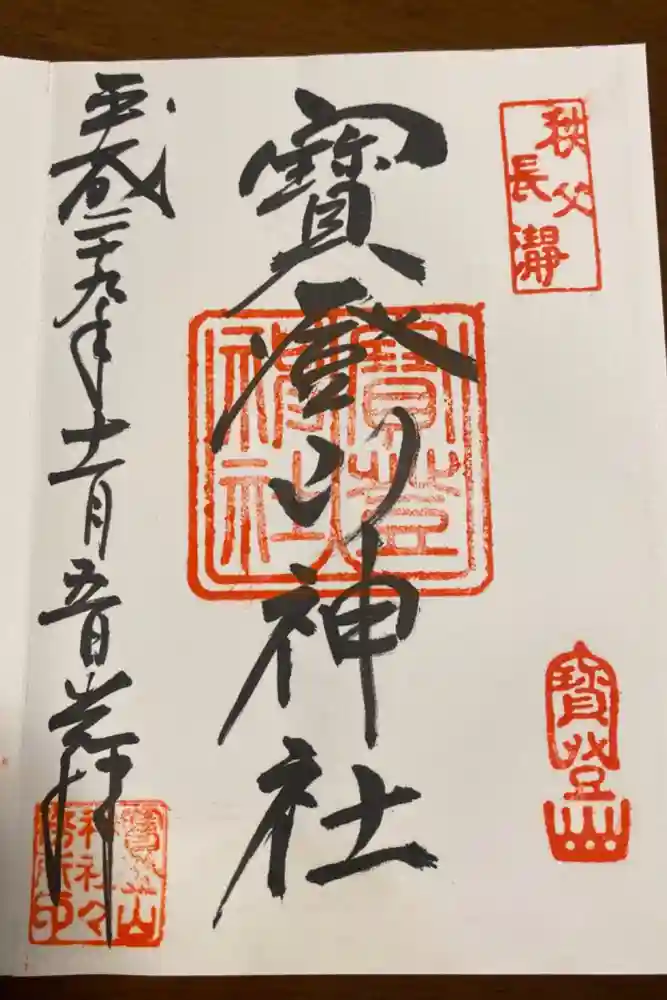 秩父
長瀞
寶登山
寶登山神社
寶登山
神社
平成二十九年十一月五日参拝
寶登山
神社々
務所印